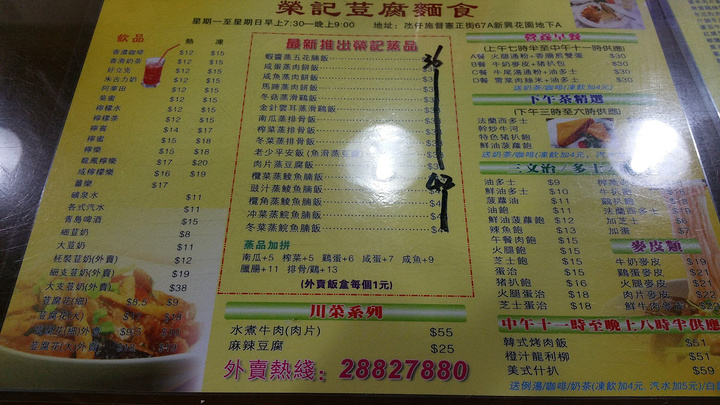 榮記荳腐麵食
星期一至星期日早上7:30一晚上9:00 地址：氹仔施督憲正街67A新興花園地下A
飲品 熱 凍
香濃咖啡 $12 $15
香滑奶茶 $12 $15
好立克 $12 $15
朱古力奶 $12 $15
阿華田 $12 $15
菊蜜 $12 $15
檸檬水 $12 $15
檸檬茶 $12 $15
檸蜜 $14 $17
檸樂 $15 $18
龍鳳檸樂 $17 $20
咸檸檬樂 $16 $19
薑樂 $17
礦泉水 $11
各式汽水 $11
青島啤酒 $15
細荳奶 $8
大荳奶 $11
枝裝荳奶(外賣) $12
細支荳奶(外賣) $19
大支荳奶(外賣) $38
荳腐花(細) $8.5 $9
荳腐花(大)
最新推出榮記蒸品
蝦醬蒸五花腩飯
咸蛋蒸肉餅飯
咸魚蒸肉餅飯
馬蹄蒸肉餅飯
冬菇蒸滑鷄飯
金針雲耳蒸滑鷄飯
南瓜蒸排骨飯
榨菜蒸排骨飯
冬菜蒸排骨飯
老少平安飯(魚滑蒸豆腐
肉片蒸豆腐飯
欖菜蒸鯪魚腩飯
豉汁蒸鯪魚腩飯
欖角蒸鯪魚腩飯
冲菜蒸鯇魚腩飯
冬菜蒸鯇魚腩飯
36
47
蒸品加拼
南瓜+5 榨菜+5 鷄蛋+6 咸蛋+7 咸魚+9
臘腸+11 排骨/鷄+13
(外賣飯盒每個1元)
川菜系列
水煮牛肉(肉片) $55
麻辣豆腐 $25
外賣熱綫：28827880
營養早餐
(上午七時半至中午十一時供應)
A餐 火腿通粉+香腸煎雙蛋 $30
B餐 牛奶麥皮+豬扒包 $30
C餐 牛尾湯通粉+油多士 $30
D餐 雪菜肉絲米+油多士 $30
送奶茶/咖啡(凍飲加4元)
下午茶精選
(下午三時至六時供應)
法蘭西多士
幹炒牛河
特色豬扒飽
鮮油菠蘿飽
送奶茶/咖啡(凍飲加4元, 汽水
三文治/多士
油多士 $9
鮮奶油多士 $10
菠蘿油 $11
油飽 $11
鮮油菠蘿飽 $12
辣魚飽 $13
午餐肉飽 $15
火腿飽 $15
芝士飽 $15
蛋治 $15
豬扒飽 $16
火腿蛋治 $18
芝士蛋治 $18
牛扒
鷄扒飽
法蘭西多士
加芝士
加蛋 $7
麥皮類
牛奶麥皮 $19
鷄蛋麥皮 $21
火腿麥皮 $21
肉片麥皮 $22
鮮牛肉麥皮
中午十一時至晚上八時半供應
韓式烤肉飯 $51
橙汁龍利柳 $51
美式什扒 $59
送例湯/咖啡/奶茶(凍飲加4元, 汽水加5元)/白